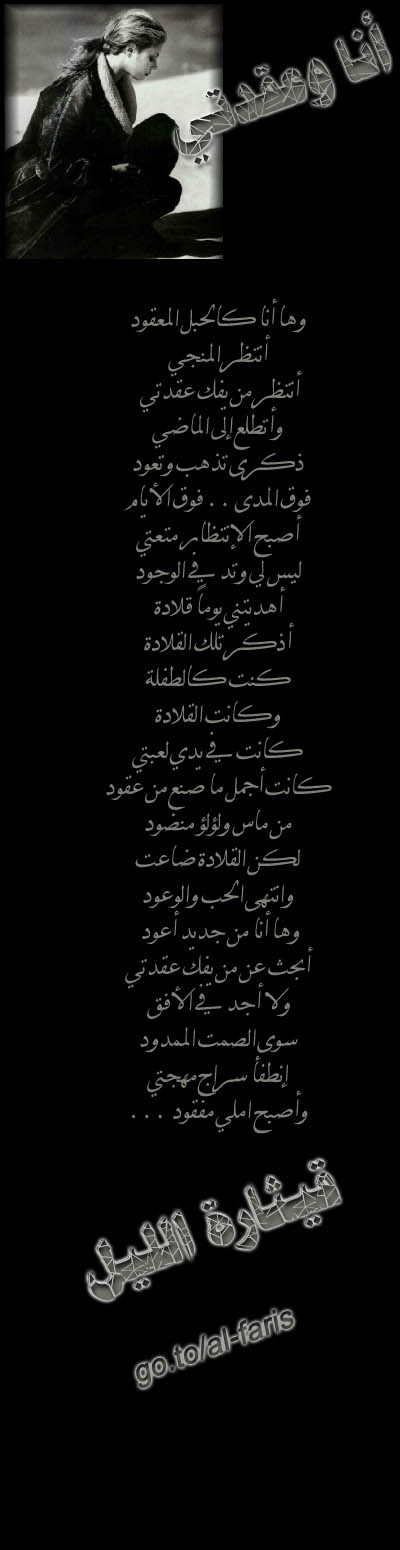 أنا وعقدتي
وها أنا كالحبل المعقود
أنتظر المنجي
أنتظر من يفك عقدتي
وأتطلع إلى الماضي
ذكرى تذهب وتعود
فوق المدى .. فوق الأيام
أصبح الإنتظار متعتي
ليس لي وتد في الوجود
أهديتني يوماً قلادة
أذكر تلك القلادة
كنت كالطفلة
وكانت القلادة
كانت في يدي لعبتي
كانت أجمل ما صنع من عقود
من ماس ولؤلؤ منضود
لكن القلادة ضاعت
وانتهى الحب والوعود
وها أنا من جديد أعود
أبحث عن من يفك عقدتي
ولا أجد في الأفق
سوى الصمت الممدود
إنطفأ سراج مهجتي
وأصبح املي مفقود ...
قيثارة الليل
go.to/al-faris